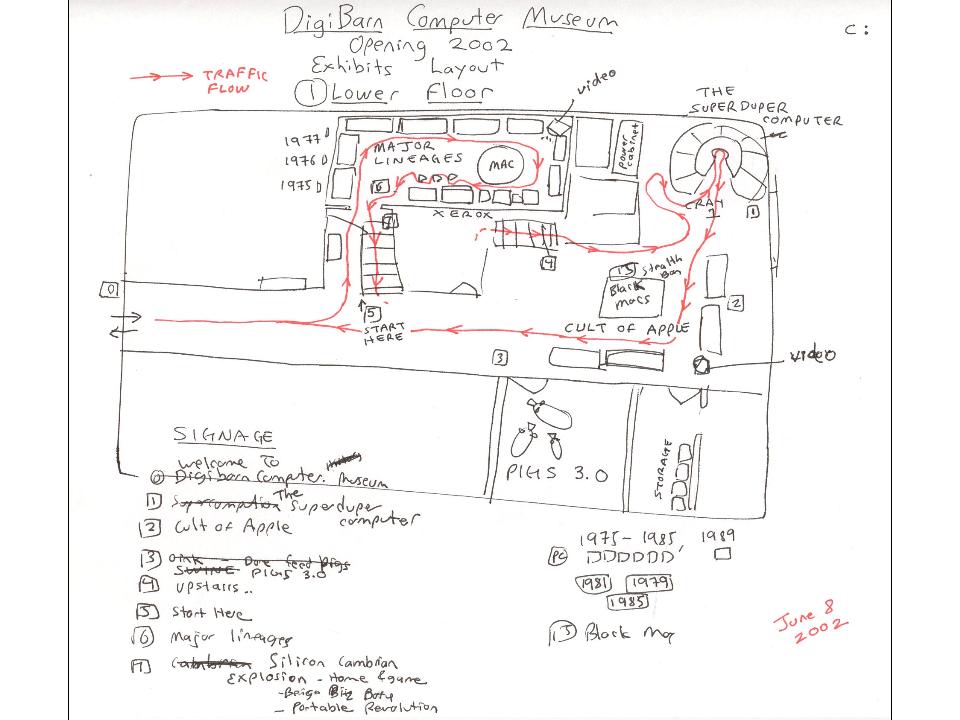 DigiBarn Computer Museum
Opening 2002
Exhibits Layout
1 Lower Floor
C:
TRAFFIC
FLOW
video
THE
SUPERDUPER
COMPUTER
1977
1976
1975
MAJOR
LINEAGES
MAC
6
XEROX
7
Power
cabinet
CRAY
1
1
4
0
5
START
HERE
13
Stealth
Black
Macs
2
CULT OF APPLE
3
video
PIGS 3.0
STORAGE
SIGNAGE
Welcome To
0 Digibarn Computer Museum
1 Supercompution The Superduper
computer
2 Cult of Apple
3 Oink - Don't feed Pigs
SWINE PIGS 3.0
4 Upstairs..
5 Start Here
6 Major lineages
7 Cambrian Silicon Cambrian
Explosion - Home & game
- Beige Big Boty
- Portable Revolution
1975-1985, 1989
PC
1981 1979
1985
13 Black Mac
June 8
2002